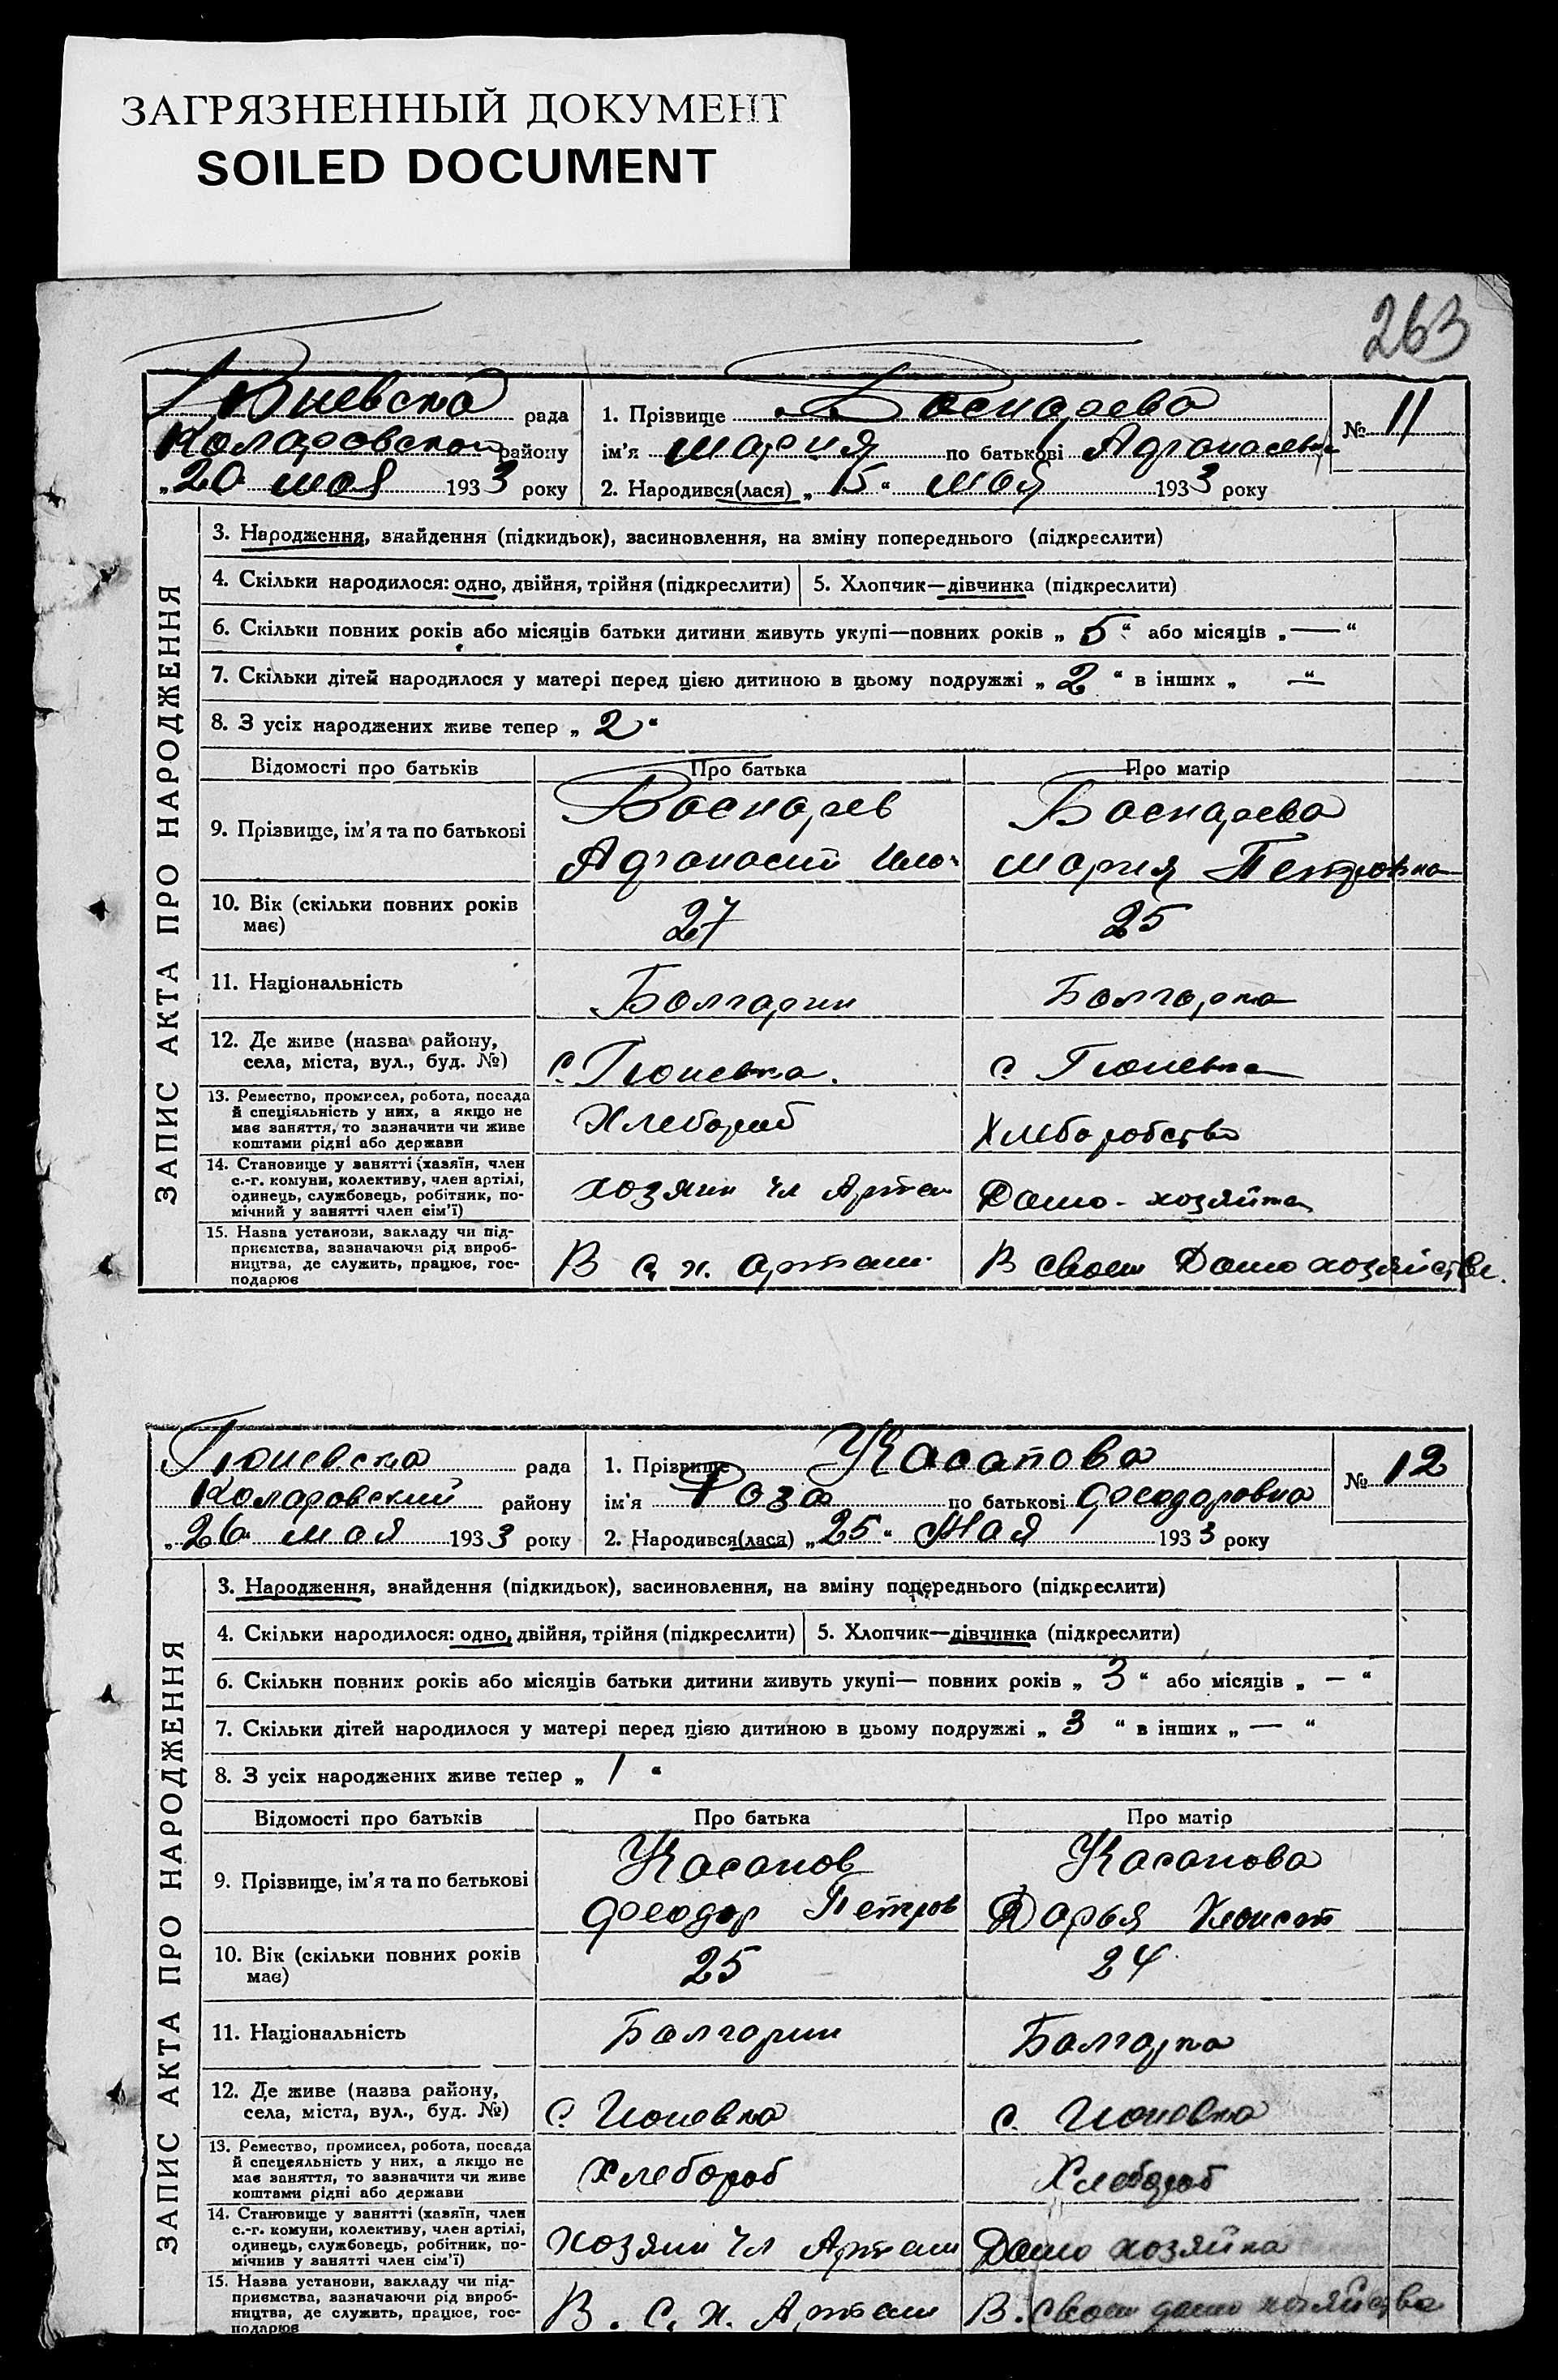 ЗАГРЯЗНЕННЫЙ ДОКУМЕНТ
SOILED DOCUMENT
263
рада
Коларовского району
„20 мая 1933 року
1. Прізвище Баскаева
ім'я Мария по батькові
2. Народився(лася) „15" мая 1933 року
№ 11
ЗАПИС АКТА ПРО НАРОДЖЕННЯ
3. Народження, знайдення (підкидьок), засиновлення, на зміну попереднього (підкреслити)
4. Скільки народилося: одно, двійня, трійня (підкреслити)
5. Хлопчик—дівчинка (підкреслити)
6. Скільки повних років або місяців батьки дитини живуть укупі—повних років „ 5 “ або місяців „ — “
7. Скільки дітей народилося у матері перед цією дитиною в цьому подружжі „ 2 “ в інших „ — “
8. З усіх народжених живе тепер „ 2 “
Відомості про батьків
Про батька
Про матір
9. Прізвище, ім'я та по батькові
Мария Петровна
10. Вік (скільки повних років
має)
27
25
11. Національність
Болгарин
Болгарка
12. Де живе (назва району,
села, міста, вул., буд. №)
с. Гюневка.
с. Гюневка
13. Ремество, промисел, робота, посада
й спеціяльність у них, а якщо не
має заняття, то зазначити чи живе
коштами рідні або держави
Хлебороб
Хлеборобство
14. Становище у занятті (хазяїн, член
с.-г. комуни, колективу, член артілі,
одинець, службовець, робітник, по-
мічний у занятті член сім'ї)
хозяин чл Артели
Домо-хозяйка
15. Назва установи, закладу чи під-
приємства, зазначаючи рід вироб-
ництва, де служить, працює, гос-
подарює
В с. х. артели
В своем Домохозяйстве.
Гюневска рада
Коларовский району
„26 мая 1933 року
1. Прізвище Касапова
ім'я Роза по батькові Феодоровна
2. Народився(лася) „25“ Мая 1933 року
№ 12
ЗАПИС АКТА ПРО НАРОДЖЕННЯ
3. Народження, знайдення (підкидьок), засиновлення, на зміну попереднього (підкреслити)
4. Скільки народилося: одно, двійня, трійня (підкреслити)
5. Хлопчик—дівчинка (підкреслити)
6. Скільки повних років або місяців батьки дитини живуть укупі— повних років „ 3 “ або місяців „ — “
7. Скільки дітей народилося у матері перед цією дитиною в цьому подружжі „ 3 “ в інших „ — “
8. З усіх народжених живе тепер „ 1 “
Відомості про батьків
Про батька
Про матір
9. Прізвище, ім'я та по батькові
Касапов
Феодор Петров
Касапова
Дарья
10. Вік (скільки повних років
має)
25
24
11. Національність
Болгарин
Болгарка
12. Де живе (назва району,
села, міста, вул., буд. №)
с. Гюневка
с. Гюневка
13. Ремество, промисел, робота, посада
й спецеяльність у них, а якщо не
має заняття, то зазначити чи живе
коштами рідні або держави
Хлебороб
Хлебороб
14. Становище у занятті (хазяїн, член
с.-г. комуни, колективу, член артілі,
одинець, службовець, робітник, по-
мічнив у занятті член сім'ї)
Хозяин Чл Артели
Домо хозяйка
15. Назва установи, закладу чи під-
приємства, зазначаючи рід вироб-
ництва, де служить, працює, гос-
подарює
В. С. Х. Артели
В. своем домо хозяйства